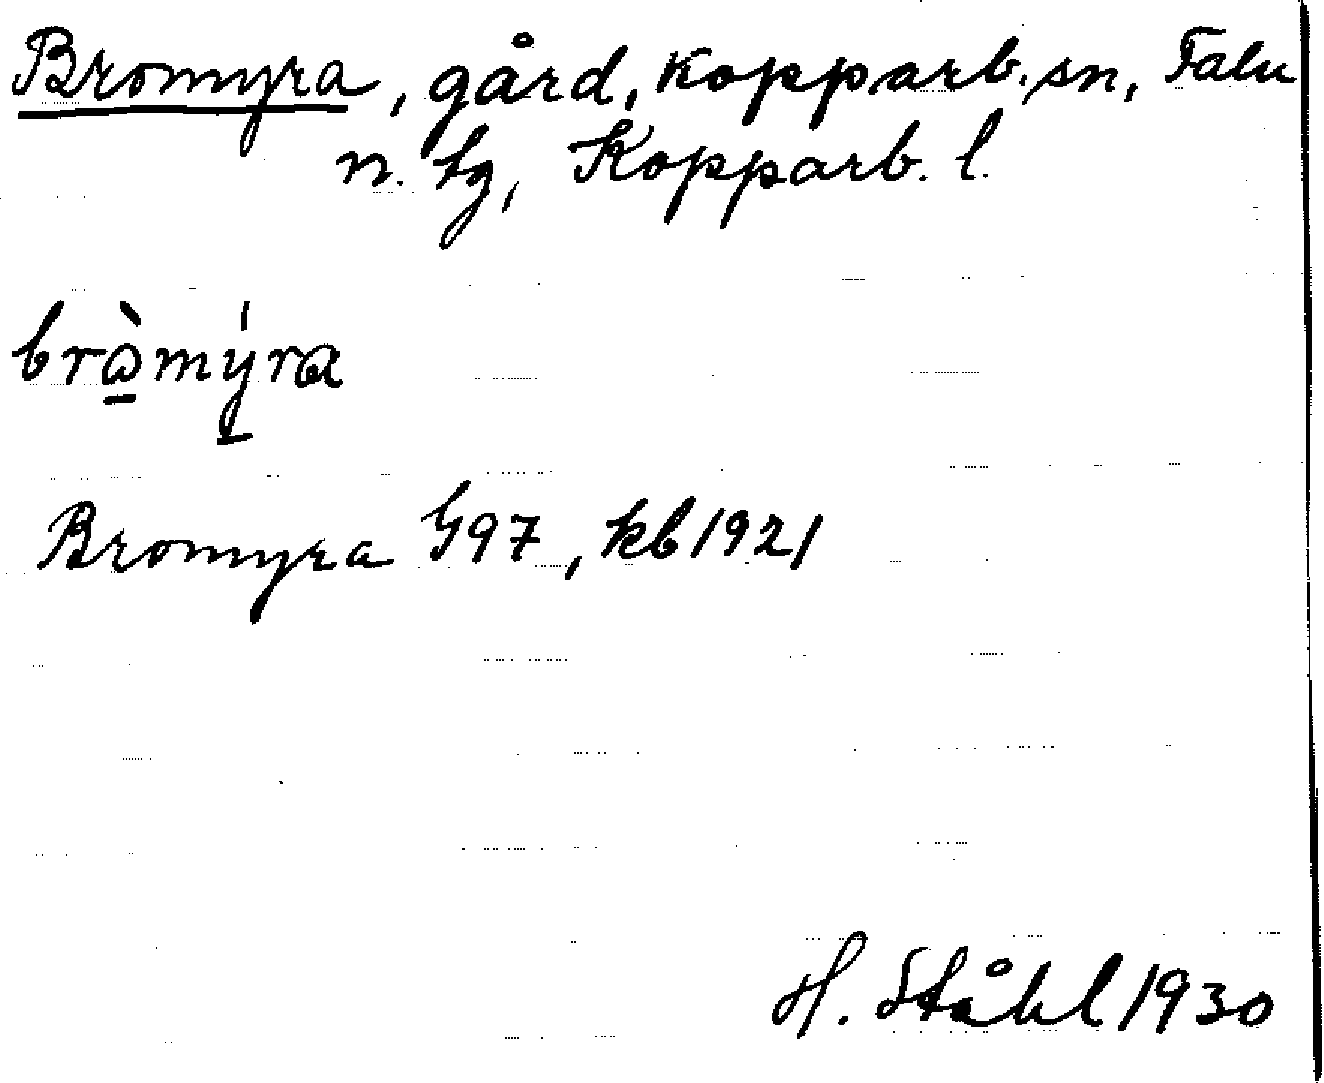 Bromyra, gård, Kopparb. sn, Falu
n. tg, Kopparb. l.
brὼ̠mý̠ra
Bromyra G97, kb 1921
H. Ståhl 1930